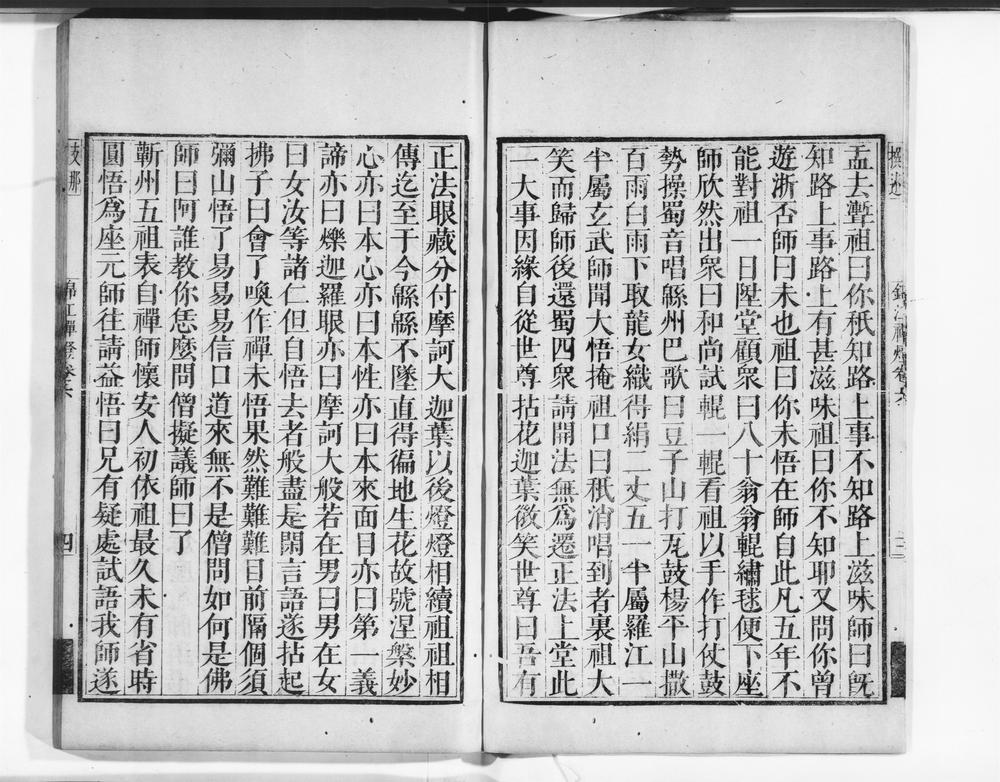 孟去蹔祖曰你秖知路上事不知路上滋味師曰旣
知路上事路上有甚滋味祖曰你不知耶又問你曾
遊浙否師曰未也祖曰你未悟在師自此凡五年不
能對祖一日陞堂顧衆曰八十翁翁輥繡毬便下座
師欣然出衆曰和尚試輥一輥看祖以手作打仗鼓
勢操蜀音唱緜州巴歌曰豆子山打瓦鼓楊平山撒
百雨白雨下取龍女織得絹二丈五一半屬羅江一
半屬玄武師聞大悟掩祖口曰秖消唱到者裏祖大
笑而歸師後還蜀四衆請開法無爲遷正法上堂此
一大事因緣自從世尊拈花迦葉微笑世尊曰吾有
正法眼藏分付摩訶大迦葉以後燈燈相續祖祖相
傳迄至于今緜緜不墜直得徧地生花故號涅槃妙
心亦曰本心亦曰本性亦曰本來面目亦曰第一義
諦亦曰爍迦羅眼亦曰摩訶大般若在男曰男在女
曰女汝等諸仁但自悟去者般盡是閑言語遂拈起
拂子曰會了喚作禪未悟果然難難難目前隔個須
彌山悟了易易易信口道來無不是僧問如何是佛
師曰阿誰教你恁麼問僧擬議師曰了
蘄州五祖表自禪師懷安人初依祖最久未有省時
圓悟爲座元師往請益悟曰兄有疑處試語我師遂
錦江禪燈卷六
四